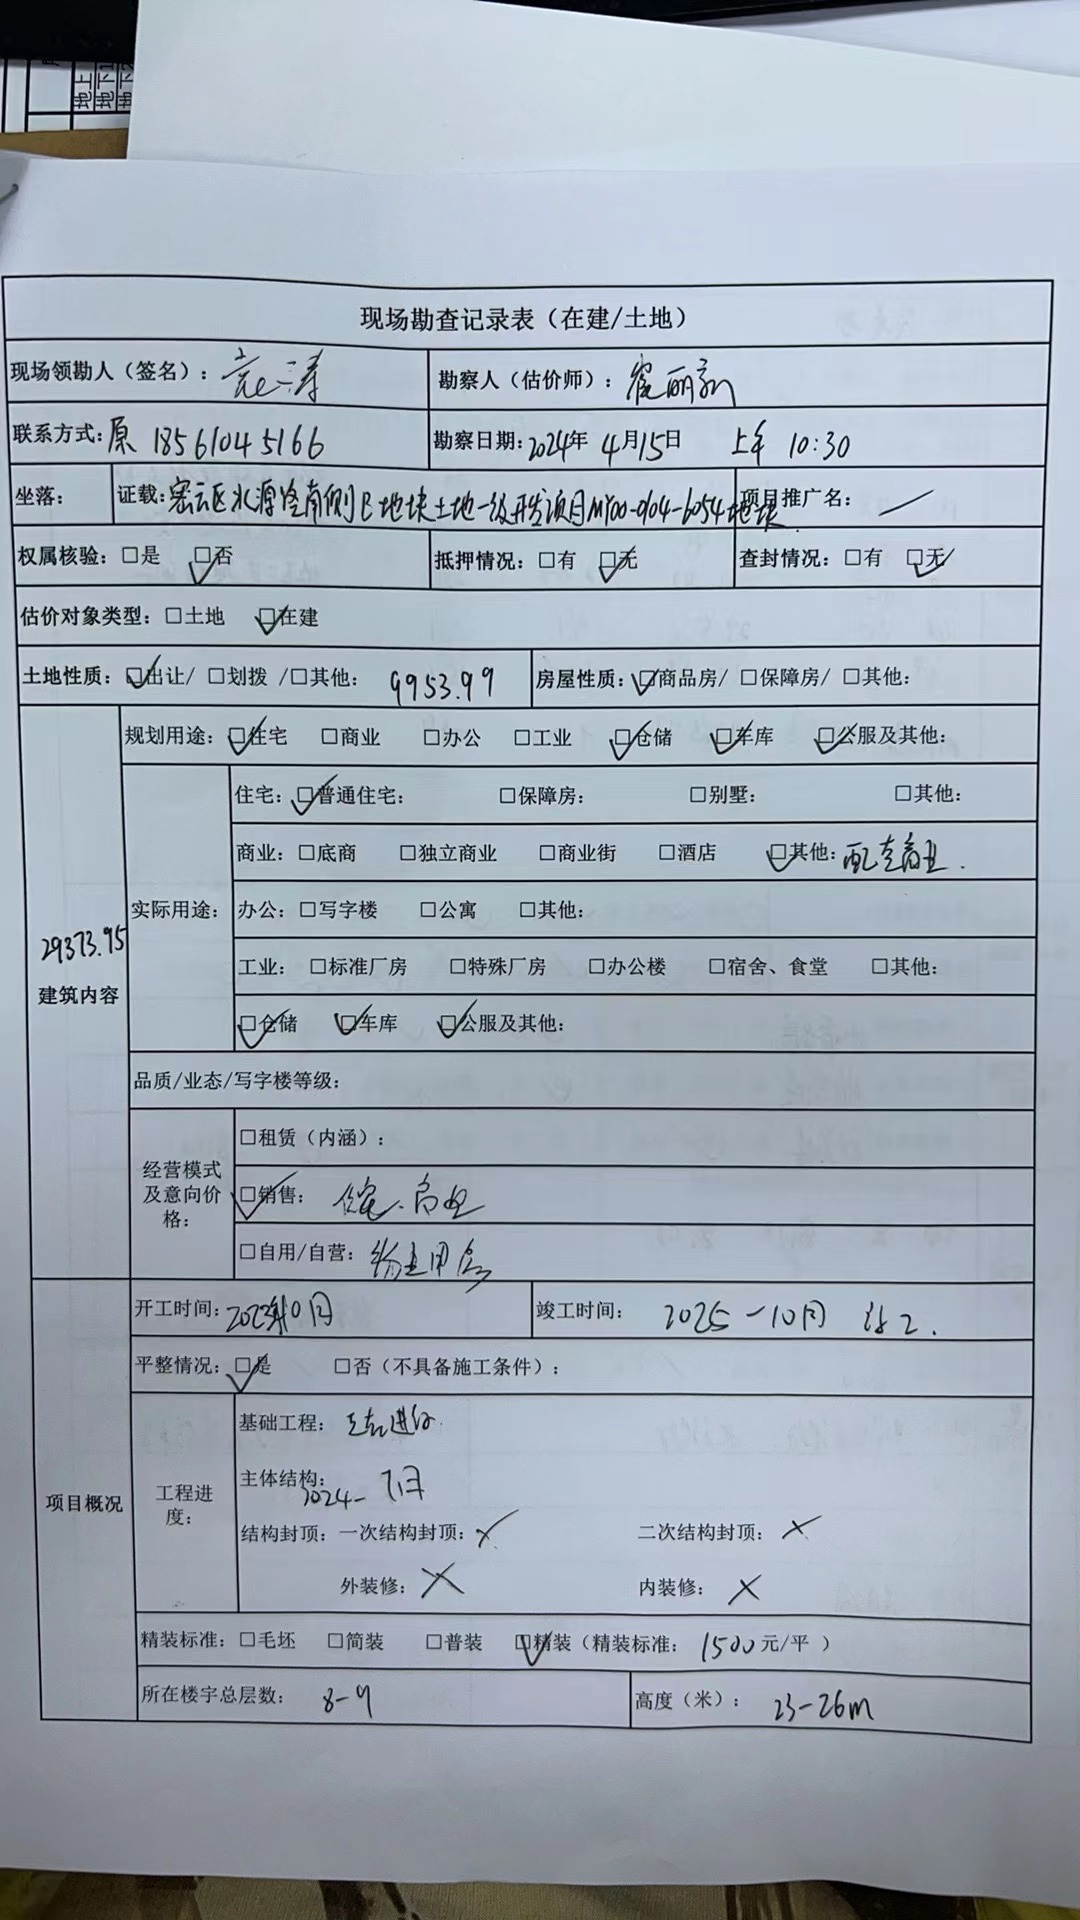 现场勘查记录表（在建/土地）
现场领勘人（签名）： 勘察人（估价师）：
联系方式：原 18561045166 勘察日期：2024年 4月15日 上午 10:30
坐落： 证载：密云区水源路南侧B地块土地一级开发项目MY00-0104-6054地块 项目推广名： —
权属核验：□是 ☑否 抵押情况：□有 ☑无 查封情况：□有 ☑无
估价对象类型：□土地 ☑在建
土地性质：☑出让/ □划拨 /□其他： 9953.99 房屋性质：☑商品房/ □保障房/ □其他：
29373.95
建筑内容
规划用途：☑住宅 □商业 □办公 □工业 ☑仓储 ☑车库 ☑公服及其他：
实际用途：
住宅：☑普通住宅： □保障房： □别墅： □其他：
商业：□底商 □独立商业 □商业街 □酒店 ☑其他：配套商业.
办公：□写字楼 □公寓 □其他：
工业：□标准厂房 □特殊厂房 □办公楼 □宿舍、食堂 □其他：
☑仓储 ☑车库 ☑公服及其他：
品质/业态/写字楼等级：
经营模式
及意向价
格：
□租赁（内涵）：
☑销售： 住宅、商业
□自用/自营： 物业用房
项目概况
开工时间：2023年10月 竣工时间： 2025-10月 竣工.
平整情况：☑是 □否（不具备施工条件）；
工程进
度：
基础工程： 正在进行.
主体结构：
2024- 7月
结构封顶：一次结构封顶：× 二次结构封顶：×
外装修：× 内装修：×
精装标准：□毛坯 □简装 □普装 ☑精装（精装标准： 1500元/平 ）
所在楼宇总层数： 8-9 高度（米）： 23-26m